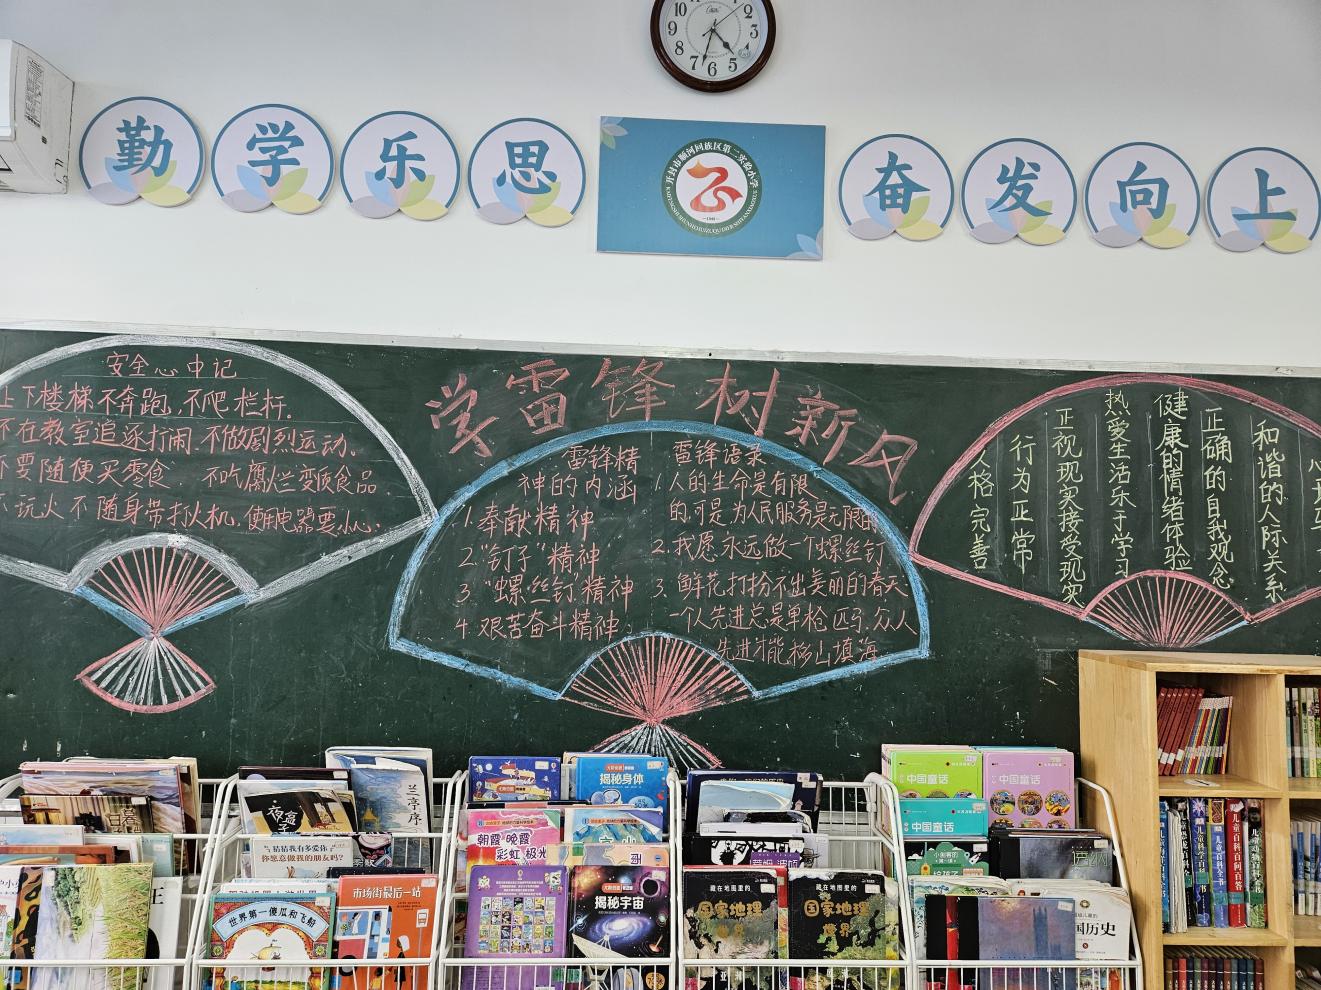 勤学乐思
开封市顺河回族区第二实验小学
奋发向上
学雷锋树新风
安全心中记
上下楼梯不奔跑,不爬栏杆.
不在教室追逐打闹.不做剧烈运动.
不要随便买零食 不吃腐烂变质食品.
不玩火 不随身带打火机.使用电器要小心.
雷锋精
神的内涵
1.奉献精神
2."钉子"精神
3."螺丝钉"精神
4.艰苦奋斗精神.
雷锋语录
1.人的生命是有限
的.可是为人民服务是无限的
2.我愿永远做一个螺丝钉
3.鲜花打扮不出美丽的春天
一个人先进总是单枪匹马.众人
先进才能移山填海
和谐的人际关系
正确的自我观念
健康的情绪体验
热爱生活乐于学习
正视现实接受现实
行为正常
人格完善
兰亭序
夜盗
猜猜我有多爱你
你愿意做我的朋友吗?
世界第一傻瓜和飞船
市场街最后一站
揭秘身体
朝霞 晚霞
彩虹 极光
揭秘宇宙
藏在地图里的
国家地理
藏在地图里的
国家地理
世界
中国童话
中国童话
中国童话
国历史
儿童百问百答